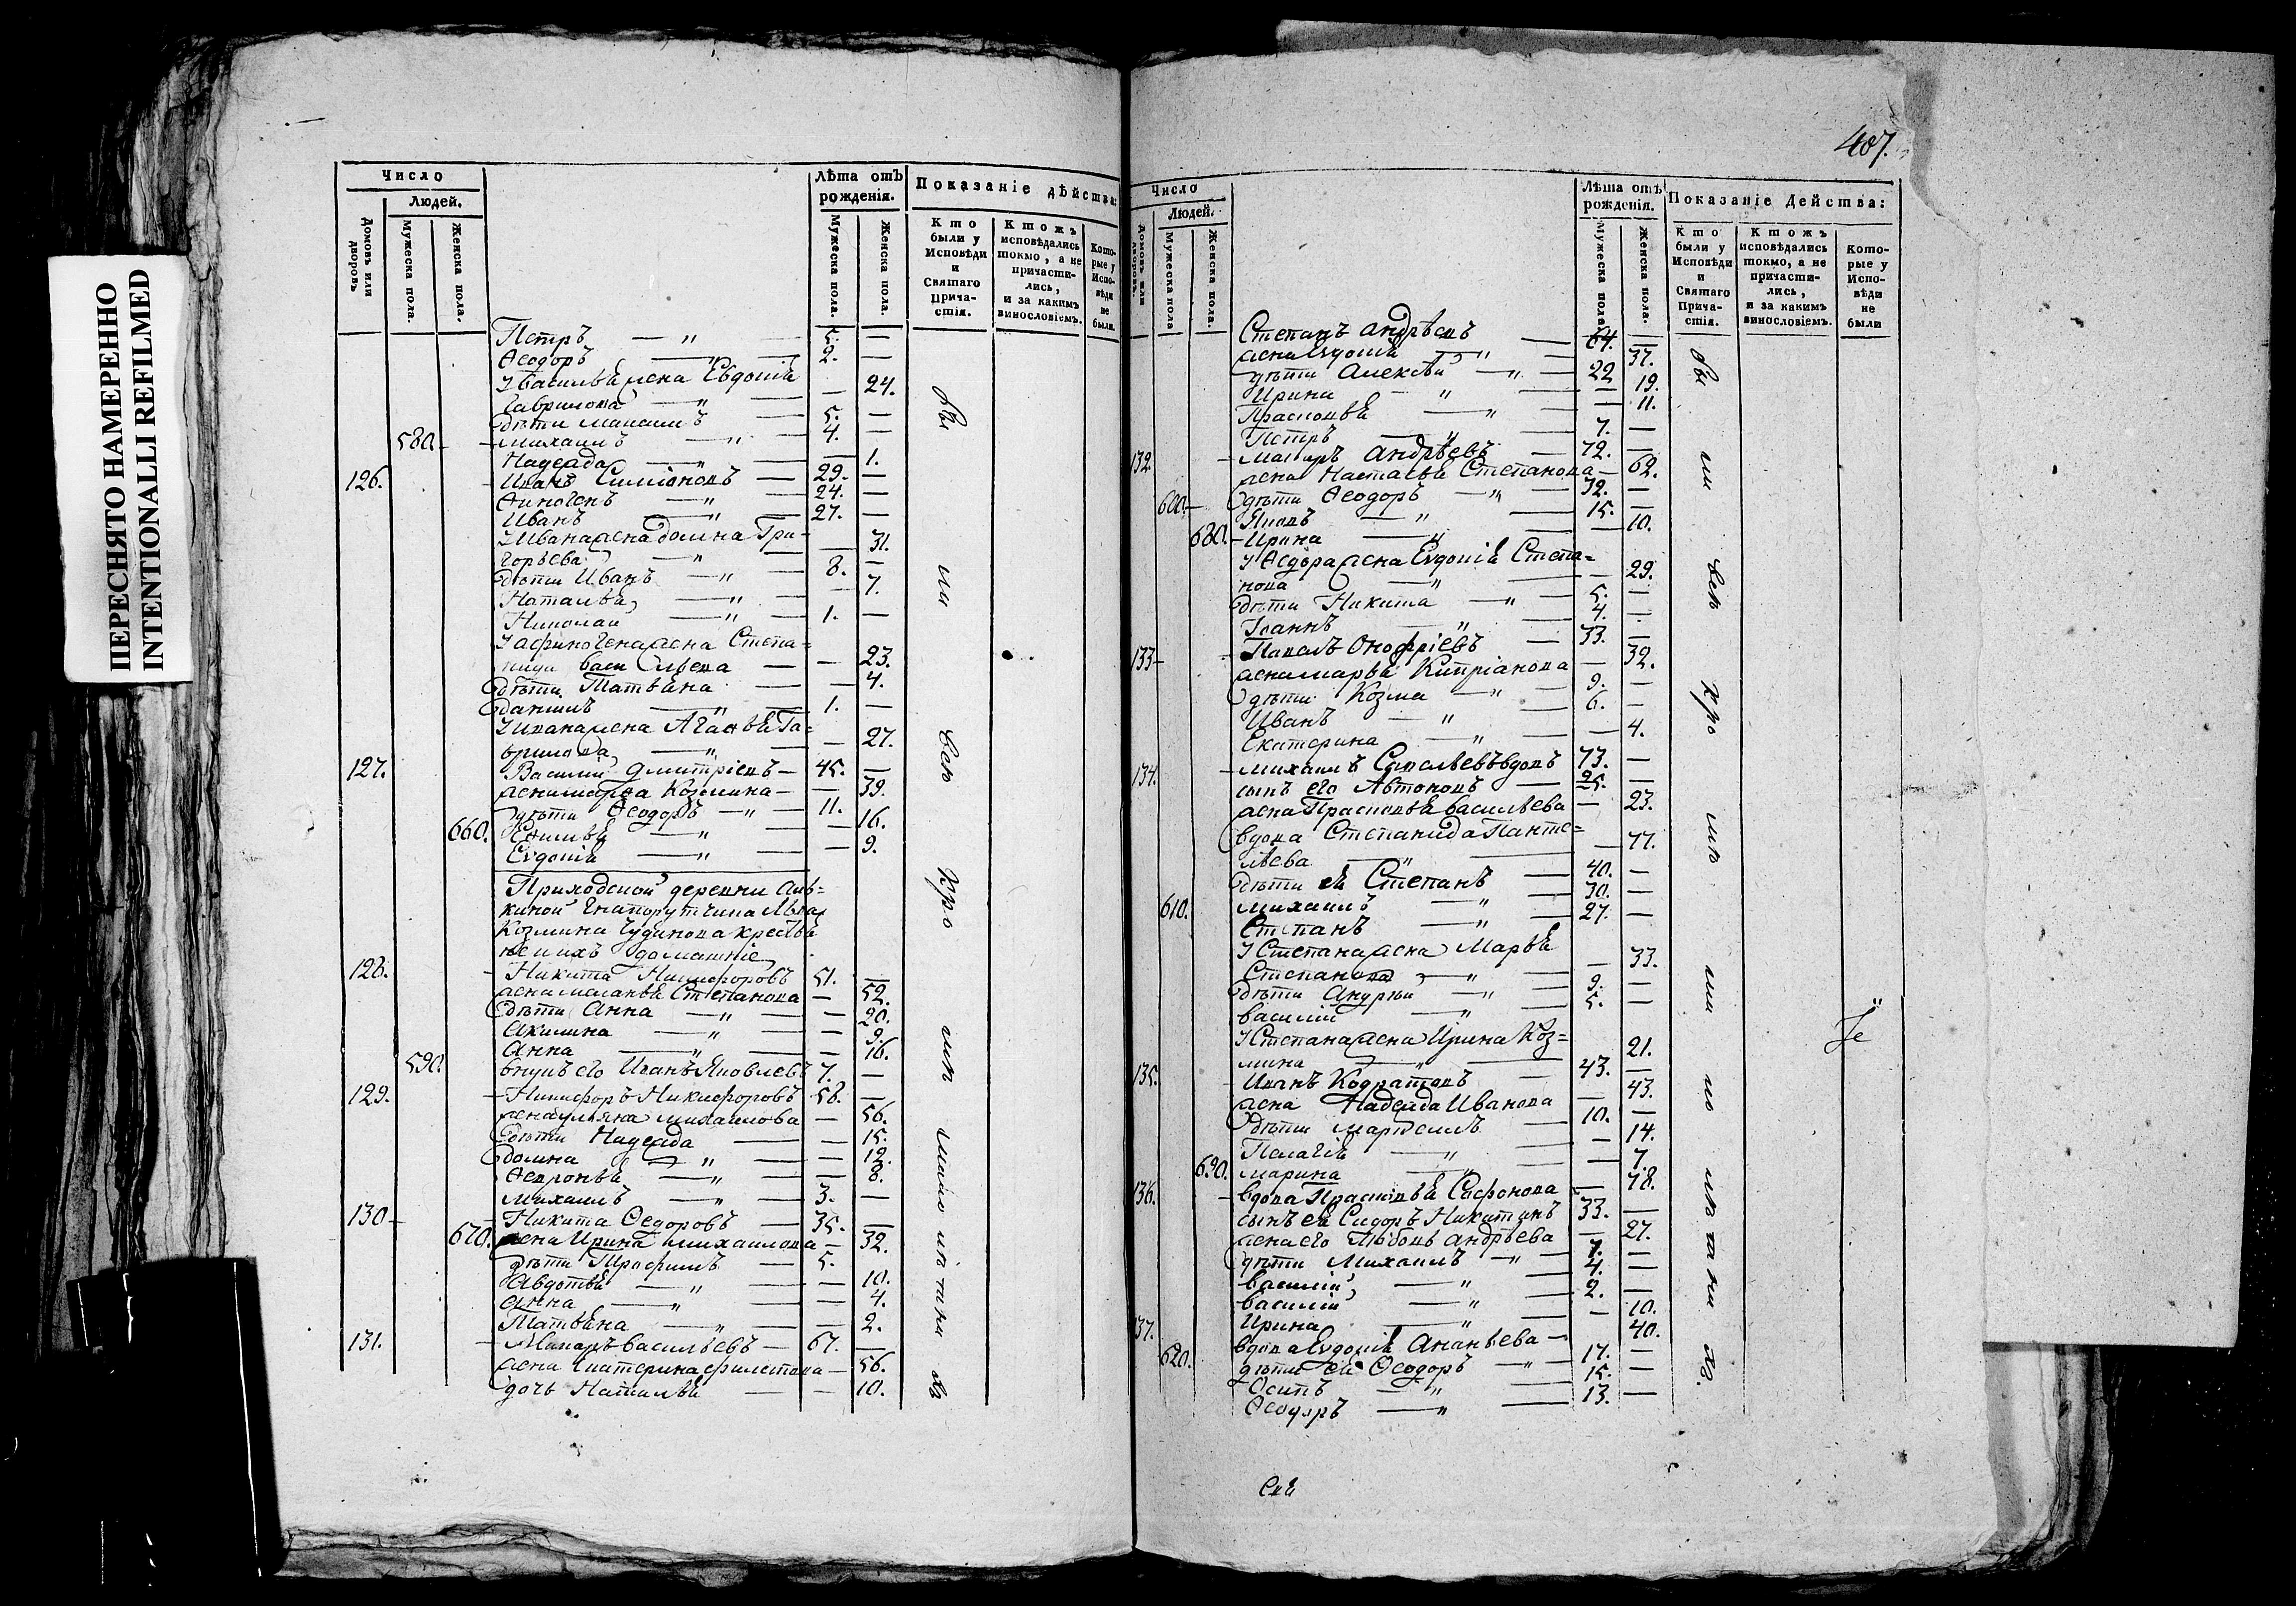 ПЕРЕСНЯТО НАМЕРЕННО
INTENTIONALLI REFILMED
Число
Людей.
Домовъ или дворовъ.
Мужеска пола.
Женска пола.
Лѣта отъ рожденія.
Мужеска пола.
Женска пола.
Показаніе дѣйства:
Кто были у Исповѣди и Святаго Прича-стія.
Ктожъ исповѣдались токмо, а не причасти-лись, и за какимъ винословіемъ.
Кото-рые у Испо-вѣди не были.
Петръ — " — 5. —
Ѳеодоръ — 2. —
У василья жена Евдокія
Гаврилова — " — — 24.
дѣти 5. —
580. михаилъ — " — 4. —
Надежда — " — — 1.
126. Иванъ Симіоновъ — 29. —
24. —
Иванъ — " — 27. —
У Ивана жена домна Гри-
горьева — " — — 31.
дѣти Иванъ — " — 8. —
Наталья — " — — 7.
Николаи — " — 1. —
У афиногена жена Степа-
нида васильева — — 23.
дѣти Матвѣна — — 4.
даниилъ — " — 1. —
У ивана жена Агафья Га-
врилова — " — — 27.
127. Василій дмитріевъ — 45. —
жена марѳа Козмина — — 39.
дѣти Ѳеодоръ — " — 11. —
660. — " — — 16.
Евдокія — " — — 9.
Приходской деревни
Козмина Чудинова крестья
не и ихъ домашніе
128. Никита Никифоровъ 51. —
жена меланья Степанова — 52.
дѣти Анна — " — — 20.
Акилина — " — — 9.
Анна — " — — 16.
590. внукъ его Иванъ Яковлевъ 7. —
129. Никифоръ Никифоровъ 58. —
жена ульяна михаилова — 56.
дѣти Надежда — — 15.
домна — " — — 12.
Ѳевронья — " — — 8.
михаилъ — " — 3. —
130 Никита Ѳедоровъ — 35. —
670. жена Ирина михаилова — 32.
дѣти Трофимъ — 5. —
Авдотья — " — — 10.
анна — " — — 4.
Матвѣна — " — — 2.
131. Макаръ васильевъ — 67. —
жена Екатерина — 56.
дочь Наталья — — 10.
407.
Число
Людей.
Домовъ или дворовъ.
Мужеска пола
Женска пола.
Лѣта отъ рожденія.
Мужеска пола
Женска пола.
Показаніе Действа:
Кто были у Исповѣди и Святаго Прича-стія.
Ктожъ исповѣдались токмо, а не причасти-лись, и за какимъ винословіемъ.
Кото-рые у Испо-вѣди не были
Степанъ андрѣевъ — 64. —
жена Евдокія — " — — 37.
дѣти Алексѣй — " — 22 —
Ирина — " — — 19.
Прасковья — " — — 11.
Петръ — " — 7. —
132. Макаръ Андрѣевъ — 72. —
жена Настасья Степанова — 62.
600. дѣти Ѳеодоръ — " — 32. —
Яковъ — " — 15. —
680. Ирина — " — — 10.
У Ѳедора жена Евдокія Степа-
нова — " — — 29.
дѣти Никита — " — 5. —
Іоаннъ — " — 4. —
133 Павелъ Онофріевъ — 33. —
жена марья Кипріанова — 32.
дѣти Козма — " — 9. —
Иванъ — " — 6. —
Екатерина — " — — 4.
134. михаилъ Савельевъ вдовъ 73. —
сынъ его Автономъ — 25. —
жена Прасковья васильева — 23.
вдова Степанида Панте-
лѣева — " — — 77.
дѣти ея Степанъ — 40. —
610. михаилъ — " — 30. —
Степанъ — " — 27. —
У Степана жена Марья
Степанова — " — — 33.
дѣти Андрѣи — " — 9. —
василіи — " — 5. —
У Степана жена Ирина Коз-
мина — " — — 21.
135. Иванъ Кодратовъ — 43. —
жена Надежда Иванова — 43.
дѣти маркелъ — 10. —
Пелагія — " — — 14.
690. марина — " — — 7.
136. вдова Прасковья Сафонова — 78.
сынъ ея Сидоръ Никитинъ 33. —
жена его Любовь андрѣева — 27.
дѣти Михаилъ — " — 7. —
василій — " — 4. —
василіи — " — 2. —
Ирина — " — — 10.
137. вдова Евдокія Ананьева — 40.
620. дѣти ея Ѳеодоръ — " — 17. —
Осипъ — " — 15. —
Ѳеодоръ — " — 13. —